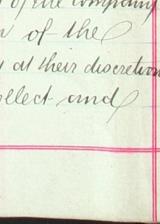 of the company
of the
at their discretion
elect and